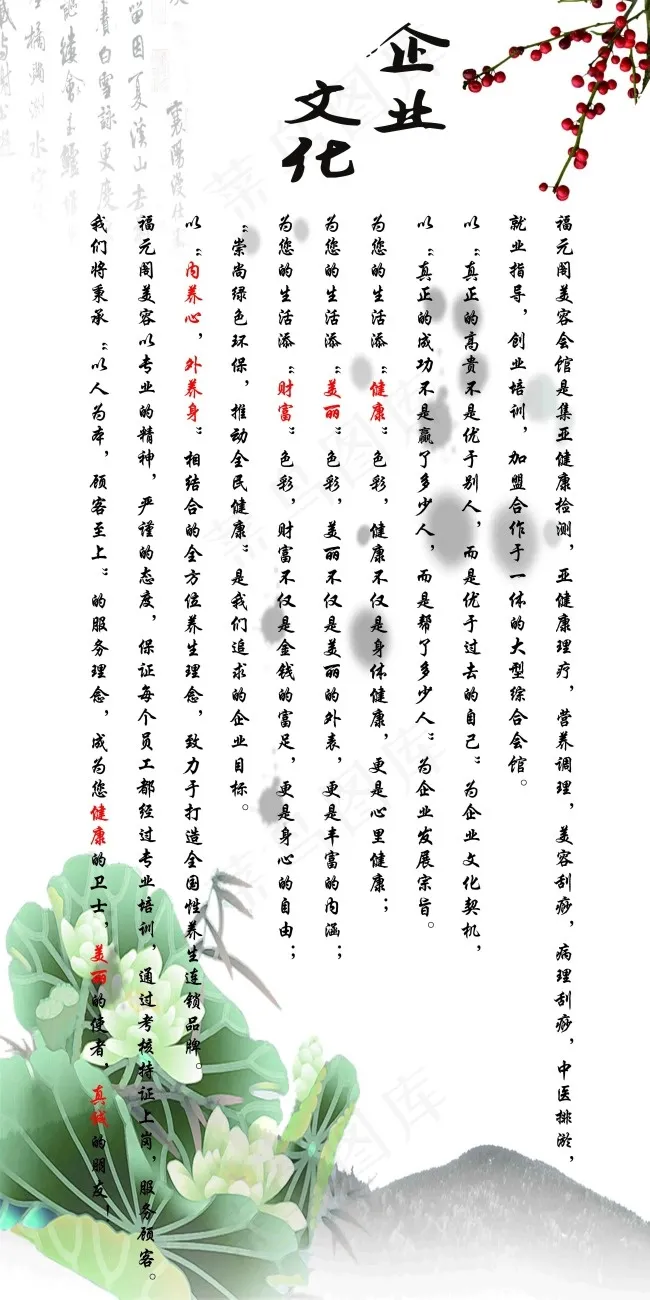 企业
文化
福元阁美容会馆是集亚健康检测，亚健康理疗，营养调理，美容刮痧，病理刮痧，中医排淤，
就业指导，创业培训，加盟合作于一体的大型综合会馆。
以“真正的高贵不是优于别人，而是优于过去的自己”为企业文化契机，
以“真正的成功不是赢了多少人，而是帮了多少人”为企业发展宗旨。
为您的生活添“健康”色彩，健康不仅是身体健康，更是心里健康；
为您的生活添“美丽”色彩，美丽不仅是美丽的外表，更是丰富的内涵；
为您的生活添“财富”色彩，财富不仅是金钱的富足，更是身心的自由；
“崇尚绿色环保，推动全民健康”是我们追求的企业目标。
以“内养心，外养身”相结合的全方位养生理念，致力于打造全国性养生连锁品牌。
福元阁美容以专业的精神，严谨的态度，保证每个员工都经过专业培训，通过考核持证上岗，服务顾客。
我们将秉承“以人为本，顾客至上”的服务理念，成为您健康的卫士，美丽的使者，真诚的朋友！
菜鸟图库